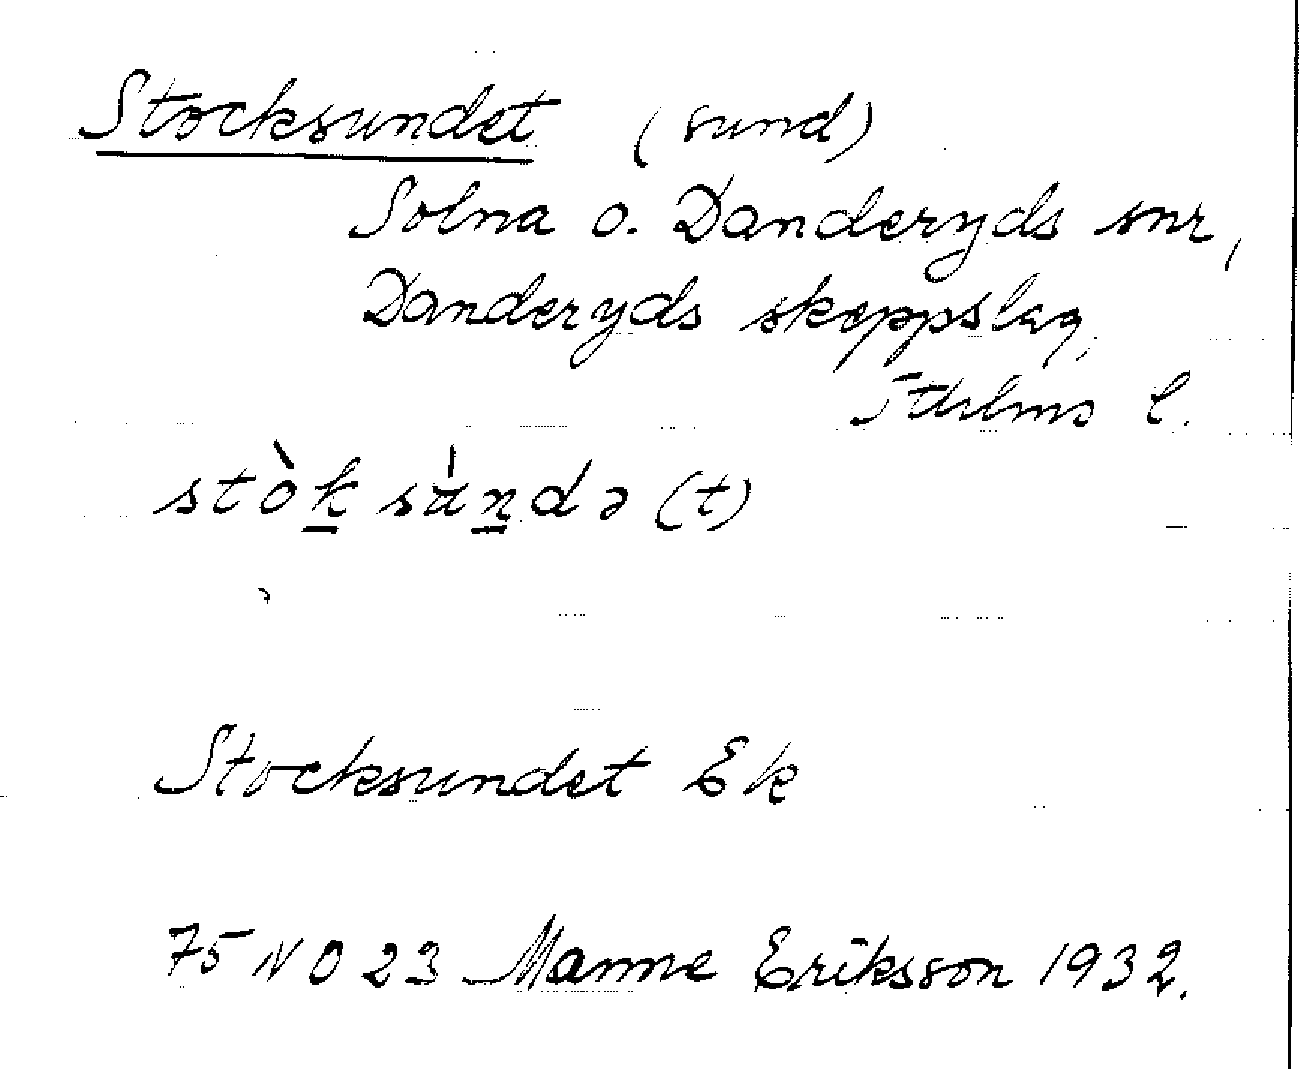 Stocksundet (sund)
Solna o. Danderyds snr,
Danderyds skeppslag,
Sthlms l.
stòk̲ sùn̲də(t)
Stocksundet Ek
75 NO 23 Manne Eriksson 1932.